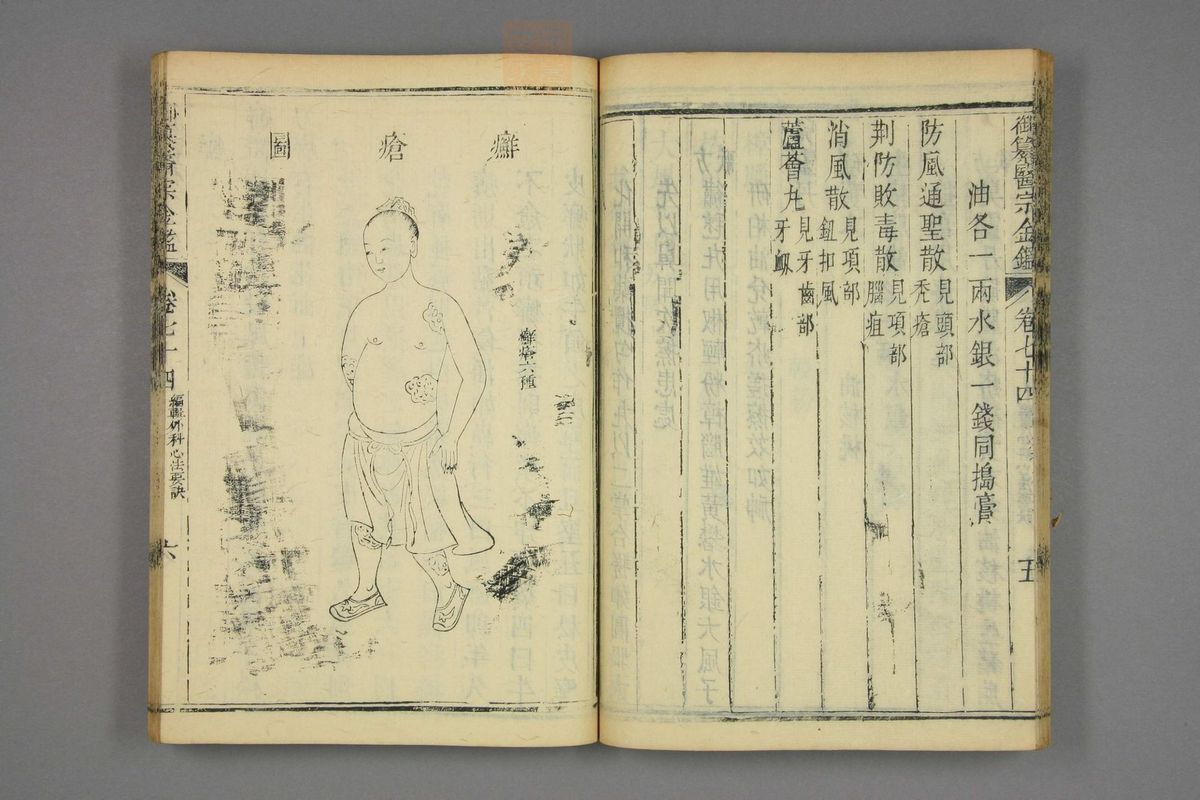 御纂醫宗金鑑
卷七十四
五
油各一兩水銀一錢同搗膏
防風通聖散 見頭部禿瘡
荆防敗毒散 見項部腦疽
消風散 見項部鈕扣風
蘆薈丸 見牙齒部牙衄
癬瘡圖
癬瘡六種
醫宗金鑑
卷七十四
編輯外科心法要訣
六